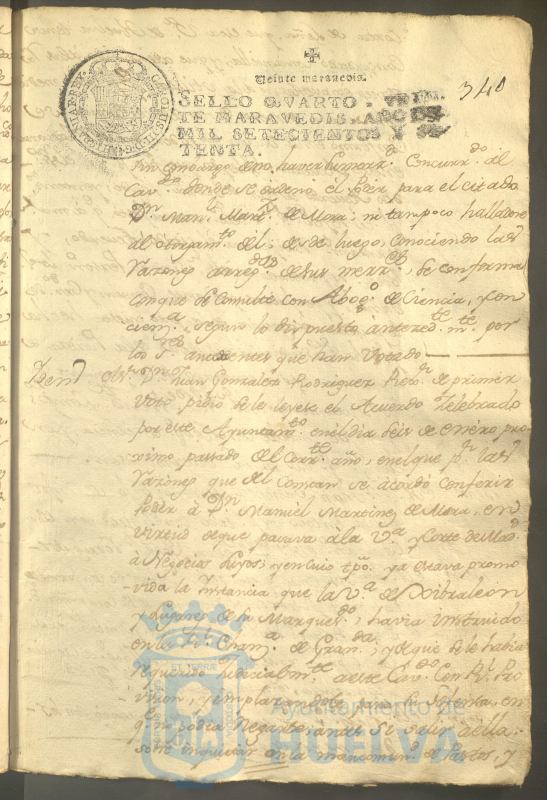 Veinte maravedis.
SELLO QVARTO, VEIN-
TE MARAVEDIS, AÑO DE
MIL SETECIENTOS Y SE-
TENTA.
340
sin embargo de no haver Concurrdo. al
Cavdo. donde se ordeno el Poder para el citado
Dn. Manl. Martz. de Mora; ni tampoco halladose
al otorgamto. de él; desde luego, Conociendo las
razones de sus merzs. se conforma
Conque se Consulte con Abogo. de Ciencia, y Con-
ciena. segun lo dispuesto antezedtemte. por
los Ses. antezedentes que han Votado
Dn. Juan Gonzalez Rodriguez Rexor. de primer
Voto pidio se le leyese el Acuerdo Zelebrado
por este Ayuntamto. en el dia seis de enero pro-
ximo passado de el Corrte. año, en el que pr. las
razones que de el Constan se acordó Conferir
Poder á Dn. Manuel Martinez de Mora, en
Virtud de que pasava á la Va. y Corte de Madd.
à Negocios suyos; y en cuio tpo. ya estava promo-
vida la Instancia que la Va. de Gibraleon
y Lugares de su Marquesdo., havia instruido
en la Rl. Chana. de Granda., y de que se le havia
requerido judicialmte. a este Cavdo. Con Rl. Pro-
vision, y emplazandosele para su defensa, en
q. no podia Negarse, antes si salir a ella
sobre en la mancomund. de Pastos, y
Ayuntamiento de
HUELVA